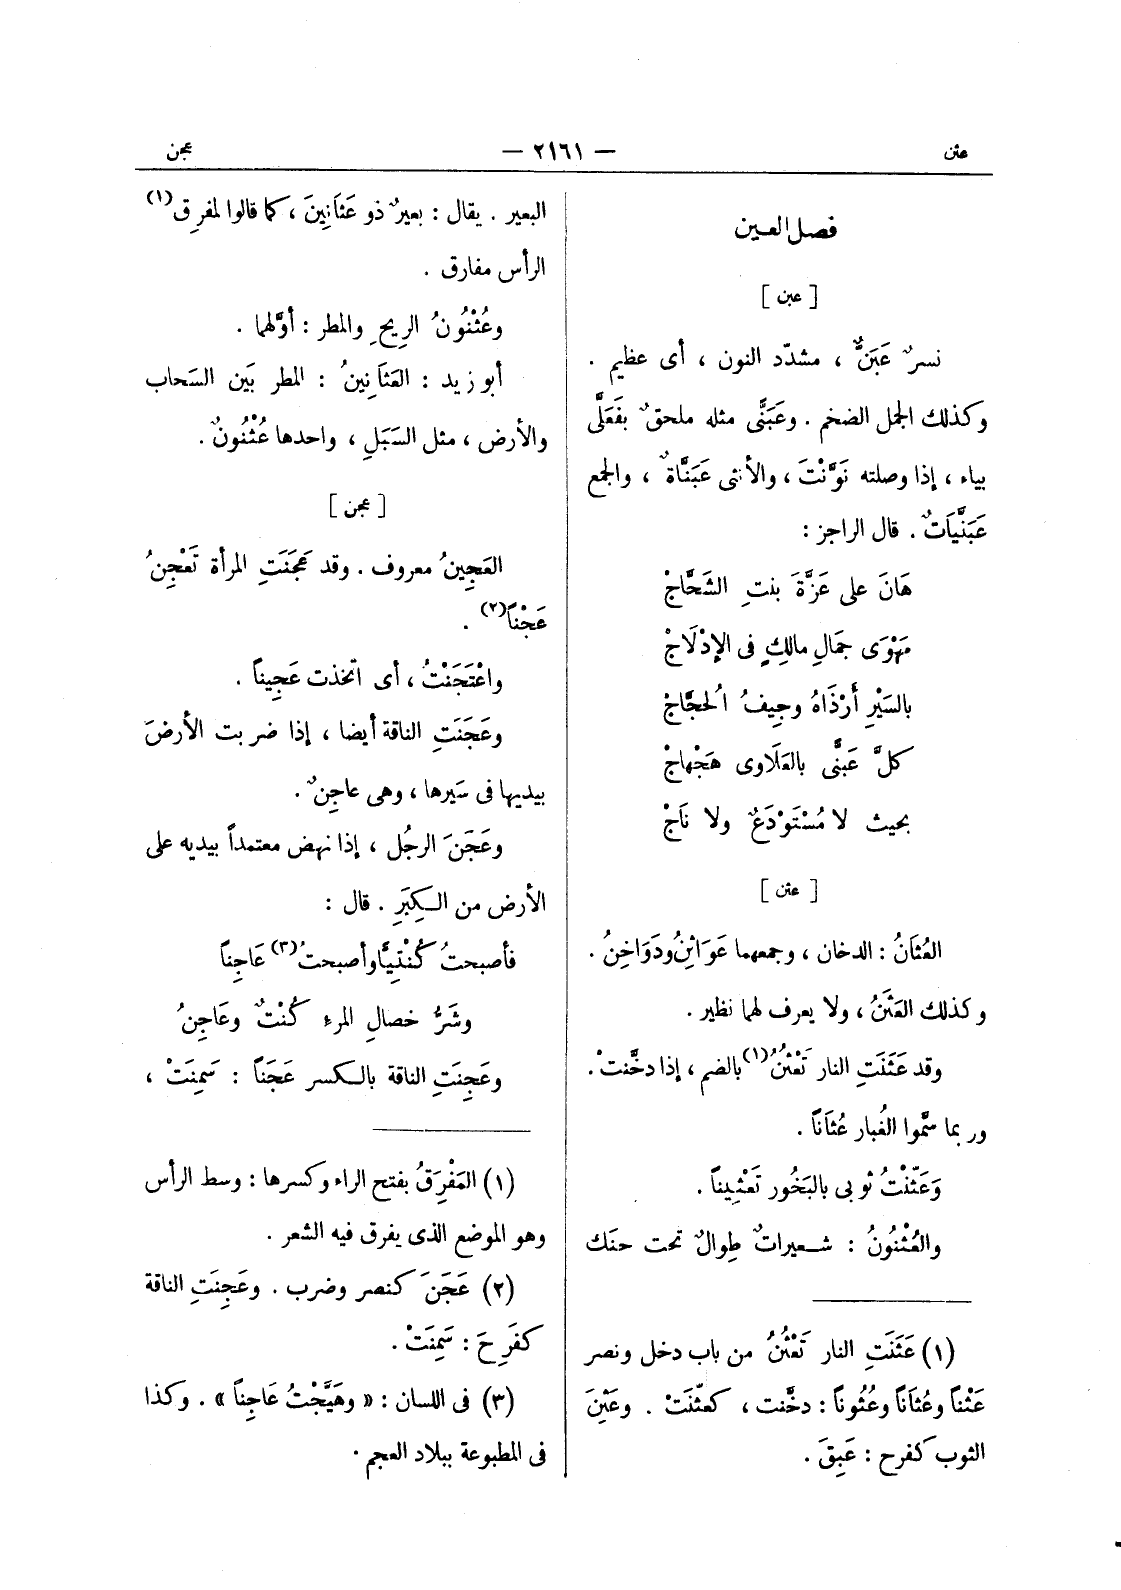 عثن
— ٢١٦١ —
عجن
فصل العين
[ عبن ]
نسرٌ عَبَنٌّ ، مشدّد النون ، أى عظيم .
وكذلك الجمل الضخم . وعَبَنًّى مثله ملحقٌ بفَعَلَّى
بياء ، إذا وصلته نَوَّنْتَ ، والأنثى عَبَنَّاةٌ ، والجمع
عَبَنَّيَاتٌ . قال الراجز :
هَانَ على عَزَّةَ بنتِ الشَحَّاجْ
مَهْوَى جِمَالِ مالِكٍ فى الإدْلَاجْ
بالسَيْرِ أَرْذَاهُ وجِيفُ الحُجَّاجْ
كلَّ عَبَنَّى بالعَلَاوى هَجْهاجْ
بحيث لا مُسْتَوْدَعٌ ولا نَاجْ
[ عثن ]
العُثَانُ : الدخان ، وجمعهما عَوَاثِنُ ودَوَاخِنُ .
وكذلك العَثَنُ ، ولا يعرف لهما نظير .
وقد عَثَنَتِ النار تَعْثُنُ(١) بالضم ، إذا دخَّنتْ .
وربما سمَّوا الغُبار عُثَاناً .
وَعَثّنْتُ ثوبى بالبَخُور تَعْثِيناً .
والعُثْنُونُ : شعيراتٌ طِوالٌ تحت حنَك
(١) عَثَنَتِ النار تَعْثُنُ من باب دخل ونصر
عَثْناً وعُثَاناً وعُثُوناً : دخَّنت ، كعثّنَتْ . وعَثِنَ
الثوب كفرح : عَبِقَ .
البعير . يقال : بعيرٌ ذو عَثَانِينَ ، كما قالوا لمفرِق(١)
الرأس مفارق .
وعُثْنُونُ الرِيحِ والمطر : أوَّلهما .
أبو زيد : العَثَانِينُ : المطر بَين السَحاب
والأرض ، مثل السَبَلِ ، واحدها عُثْنُونٌ .
[ عجن ]
العَجِينُ معروف . وقد عَجَنَتِ المرأة تَعْجِنُ
عَجْناً(٢) .
واعْتَجَنْتُ ، أى اتخذت عَجِيناً .
وعَجَنَتِ الناقة أيضا ، إذا ضربت الأرضَ
بيديها فى سَيرها ، وهى عاجِنٌ .
وعَجَنَ الرجُل ، إذا نهض معتمداً بيديه على
الأرض من الكِبَرِ . قال :
فأصبحتُ كُنْتِيًّا وأصبحتُ(٣) عَاجِناً
وشَرُّ خصالِ المرءِ كُنْتٌ وعَاجِنُ
وعَجِنَتِ الناقة بالكسر عَجَناً : سَمِنَتْ ،
(١) المَفْرِقُ بفتح الراء وكسرها : وسط الرأس
وهو الموضع الذى يفرق فيه الشعر .
(٢) عَجَنَ كنصر وضرب . وعَجِنَتِ الناقة
كفَرِحَ : سَمِنَتْ .
(٣) فى اللسان : « وهَيَّجْتُ عَاجِناً » . وكذا
فى المطبوعة ببلاد العجم .